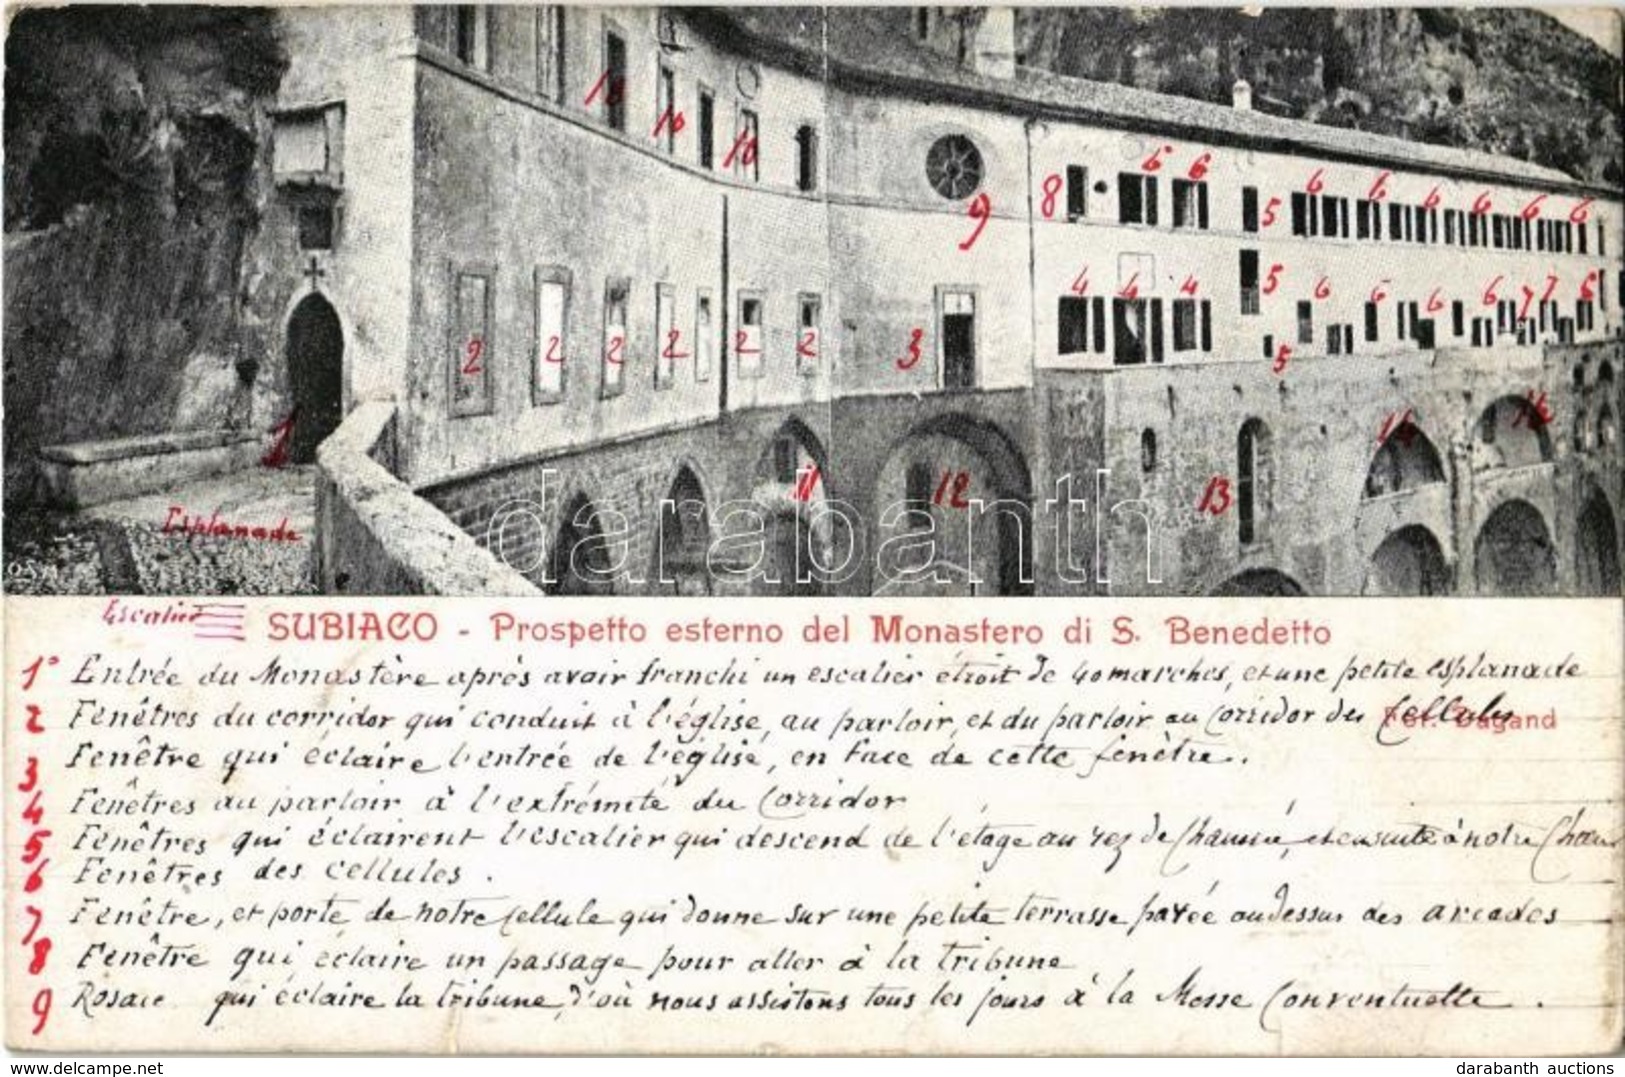 10
10
10
9
8
6
6
5
6
6
6
6
6
6
4
4
4
5
6
6
6
6
7
7
6
2
2
2
2
2
2
3
5
1
11
12
13
14
14
Esplanade
darabanth
Escalier
SUBIACO - Prospetto esterno del Monastero di S. Benedetto
1° Entrée du Monastère après avoir franchi un escalier étroit de 40 marches, et une petite esplanade
2 Fenêtres du corridor qui conduit à l'église, au parloir, et du parloir au Corridor des Cellules
3 Fenêtre qui éclaire l'entrée de l'église, en face de cette fenêtre.
4 Fenêtres au parloir à l'extrémité du Corridor
5 Fenêtres qui éclairent l'escalier qui descend de l'étage au rez de Chaussé, et ensuite à notre Chœur
6 Fenêtres des cellules.
7 Fenêtre, et porte de notre Cellule qui donne sur une petite terrasse pavée au dessus des arcades
8 Fenêtre qui éclaire un passage pour aller à la tribune
9 Rosace qui éclaire la tribune, d'où nous assistons tous les jours à la Messe Conventuelle.
www.delcampe.net
darabanth auctions